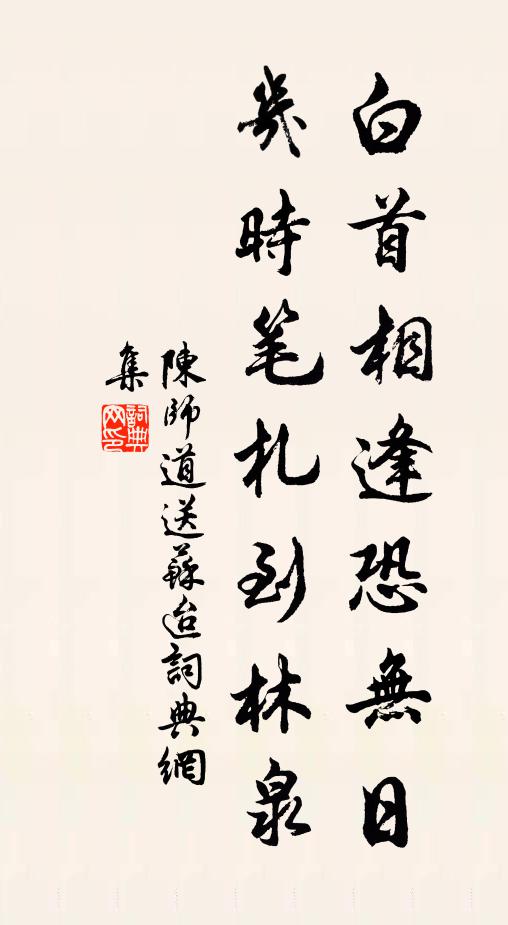 白首相逢恐無日
幾時笔札到林泉
陳師道送蘇迨詞典網
集
詞典
网印